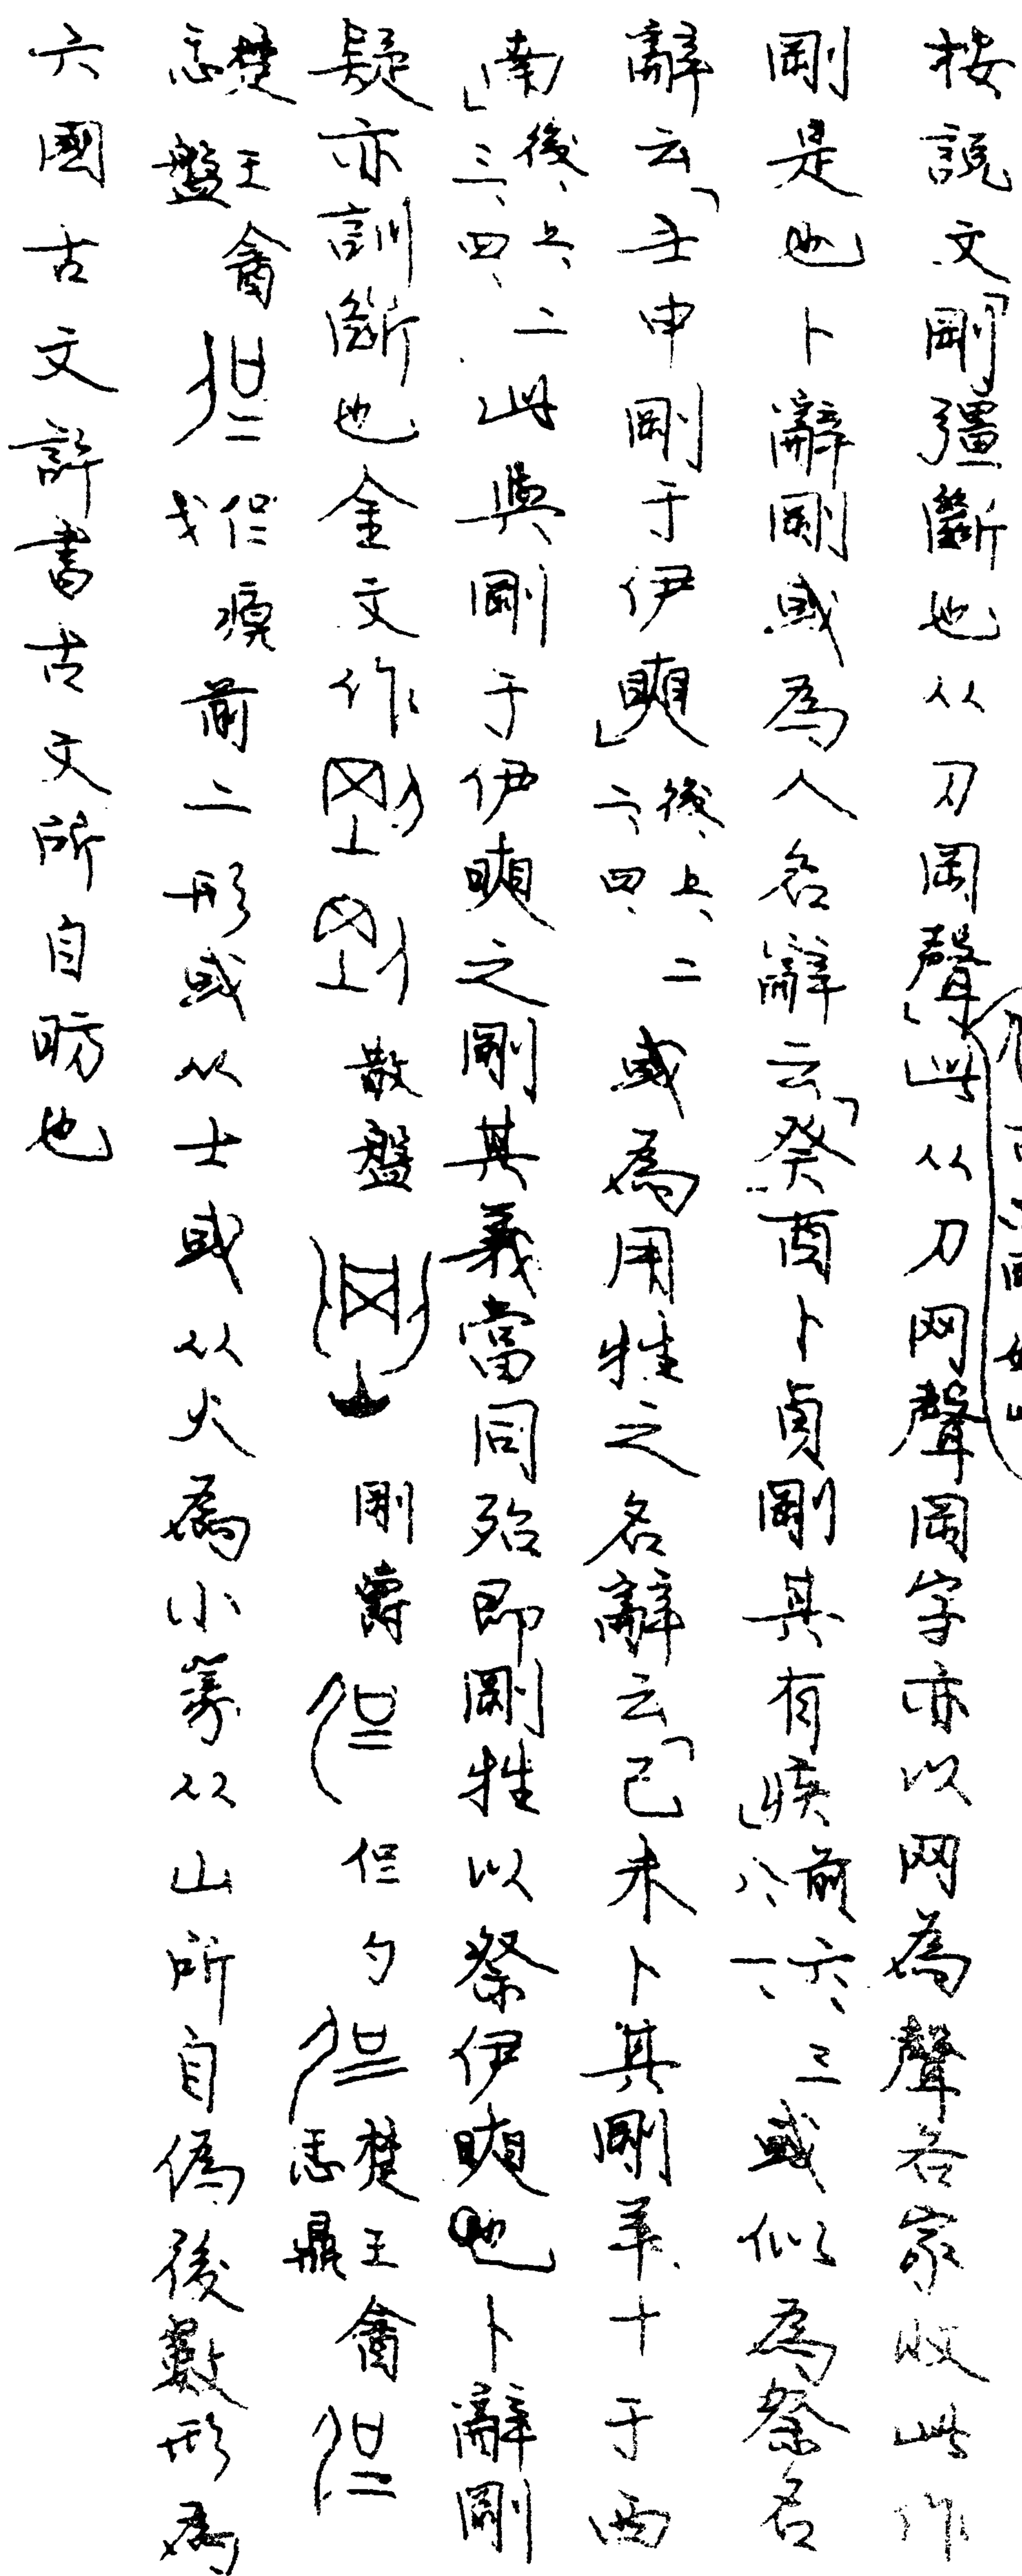 按說文「剛彊斷也从刀岡聲」此从刀网聲岡字亦以网為聲各家收此作
剛是也卜辭剛或為人名辭云「癸酉卜貞剛其有疾」前、六、三八、一、或似為祭名
辭云「壬申剛于伊奭」後、上、二二、四、或為用牲之名辭云「己未卜其剛羊十于西
南」後、上、二三、四、此與剛于伊奭之剛其義當同殆即剛牲以祭伊奭也卜辭剛
疑亦訓斷也金文作散盤剛爵㐰勺楚王酓忎鼎
楚王酓忎盤㐰戈瘼前二形或从士或从火為小篆从山所自僞後數形為
六國古文許書古文所自昉也